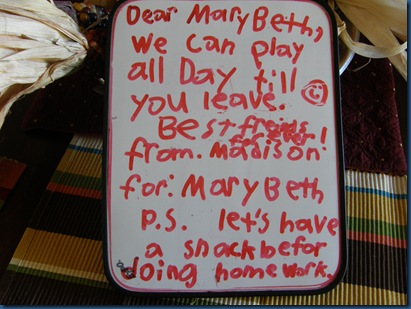 Dear MaryBeth,
we can play
all Day till
you leave.
Best frids
for ever!
from: Madison
for: MaryBeth
P.S. let's have
a snack befor
doing home work.